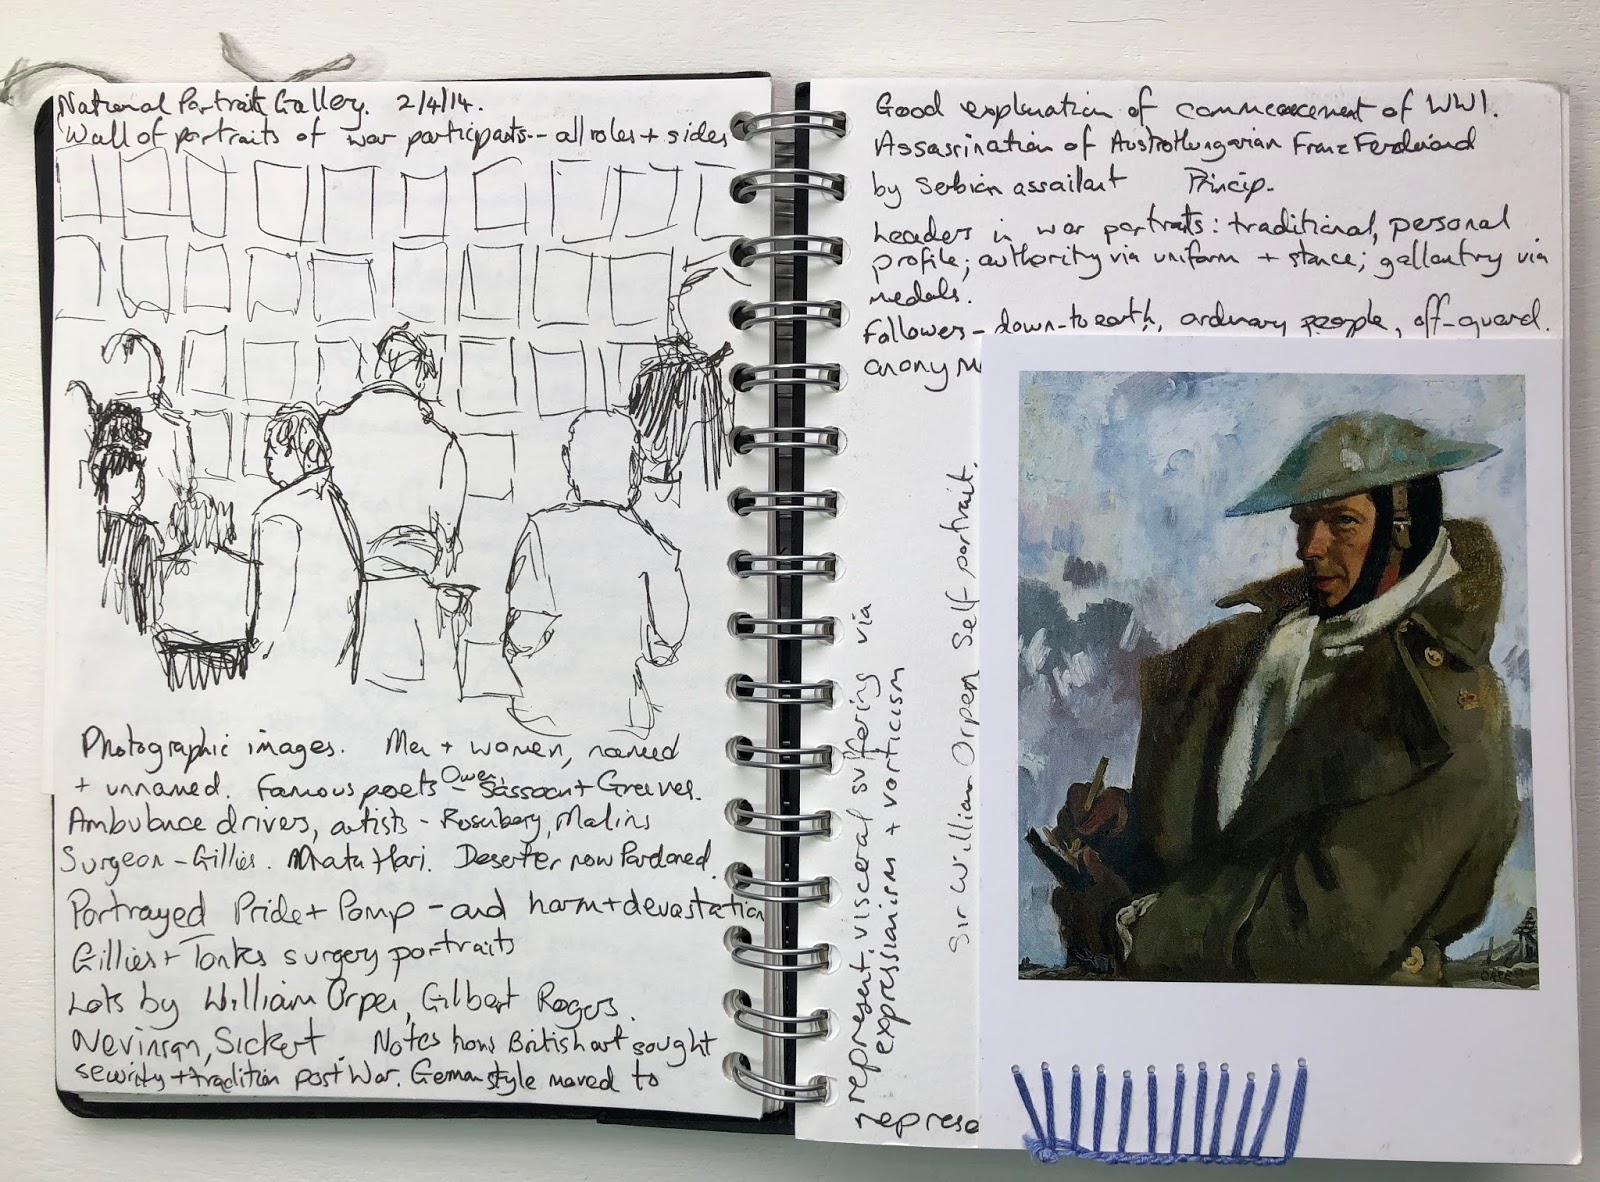 National Portrait Gallery. 2/4/14.
Wall of portraits of war participants -- all roles + sides
Photographic images. Men + women, named
+ unnamed. Famous poets - Owen, Sassoon + Greaves.
Ambulance drivers, artists - Rosenberg, Malins
Surgeon - Gillies. Mata Hari. Deserter now Pardoned.
Portrayed Pride + Pomp - and harm + devastation
Gillies + Tonks surgery portraits
Lots by William Orpen, Gilbert Rogers.
Nevinson, Sickert. Notes how British art sought
security + tradition post War. German style moved to
Good explanation of commencement of WW1.
Assassination of AustroHungarian Franz Ferdinand
by Serbian assailant Princip.
Leaders in war portraits: traditional, personal
profile; authority via uniform + stance; gallantry via
medals.
Followers - down-to earth, ordinary people, off-guard.
anonym
represent visceral suffering via
expressianism + vorticism
represe
Sir William Orpen Self portrait.
ORPEN